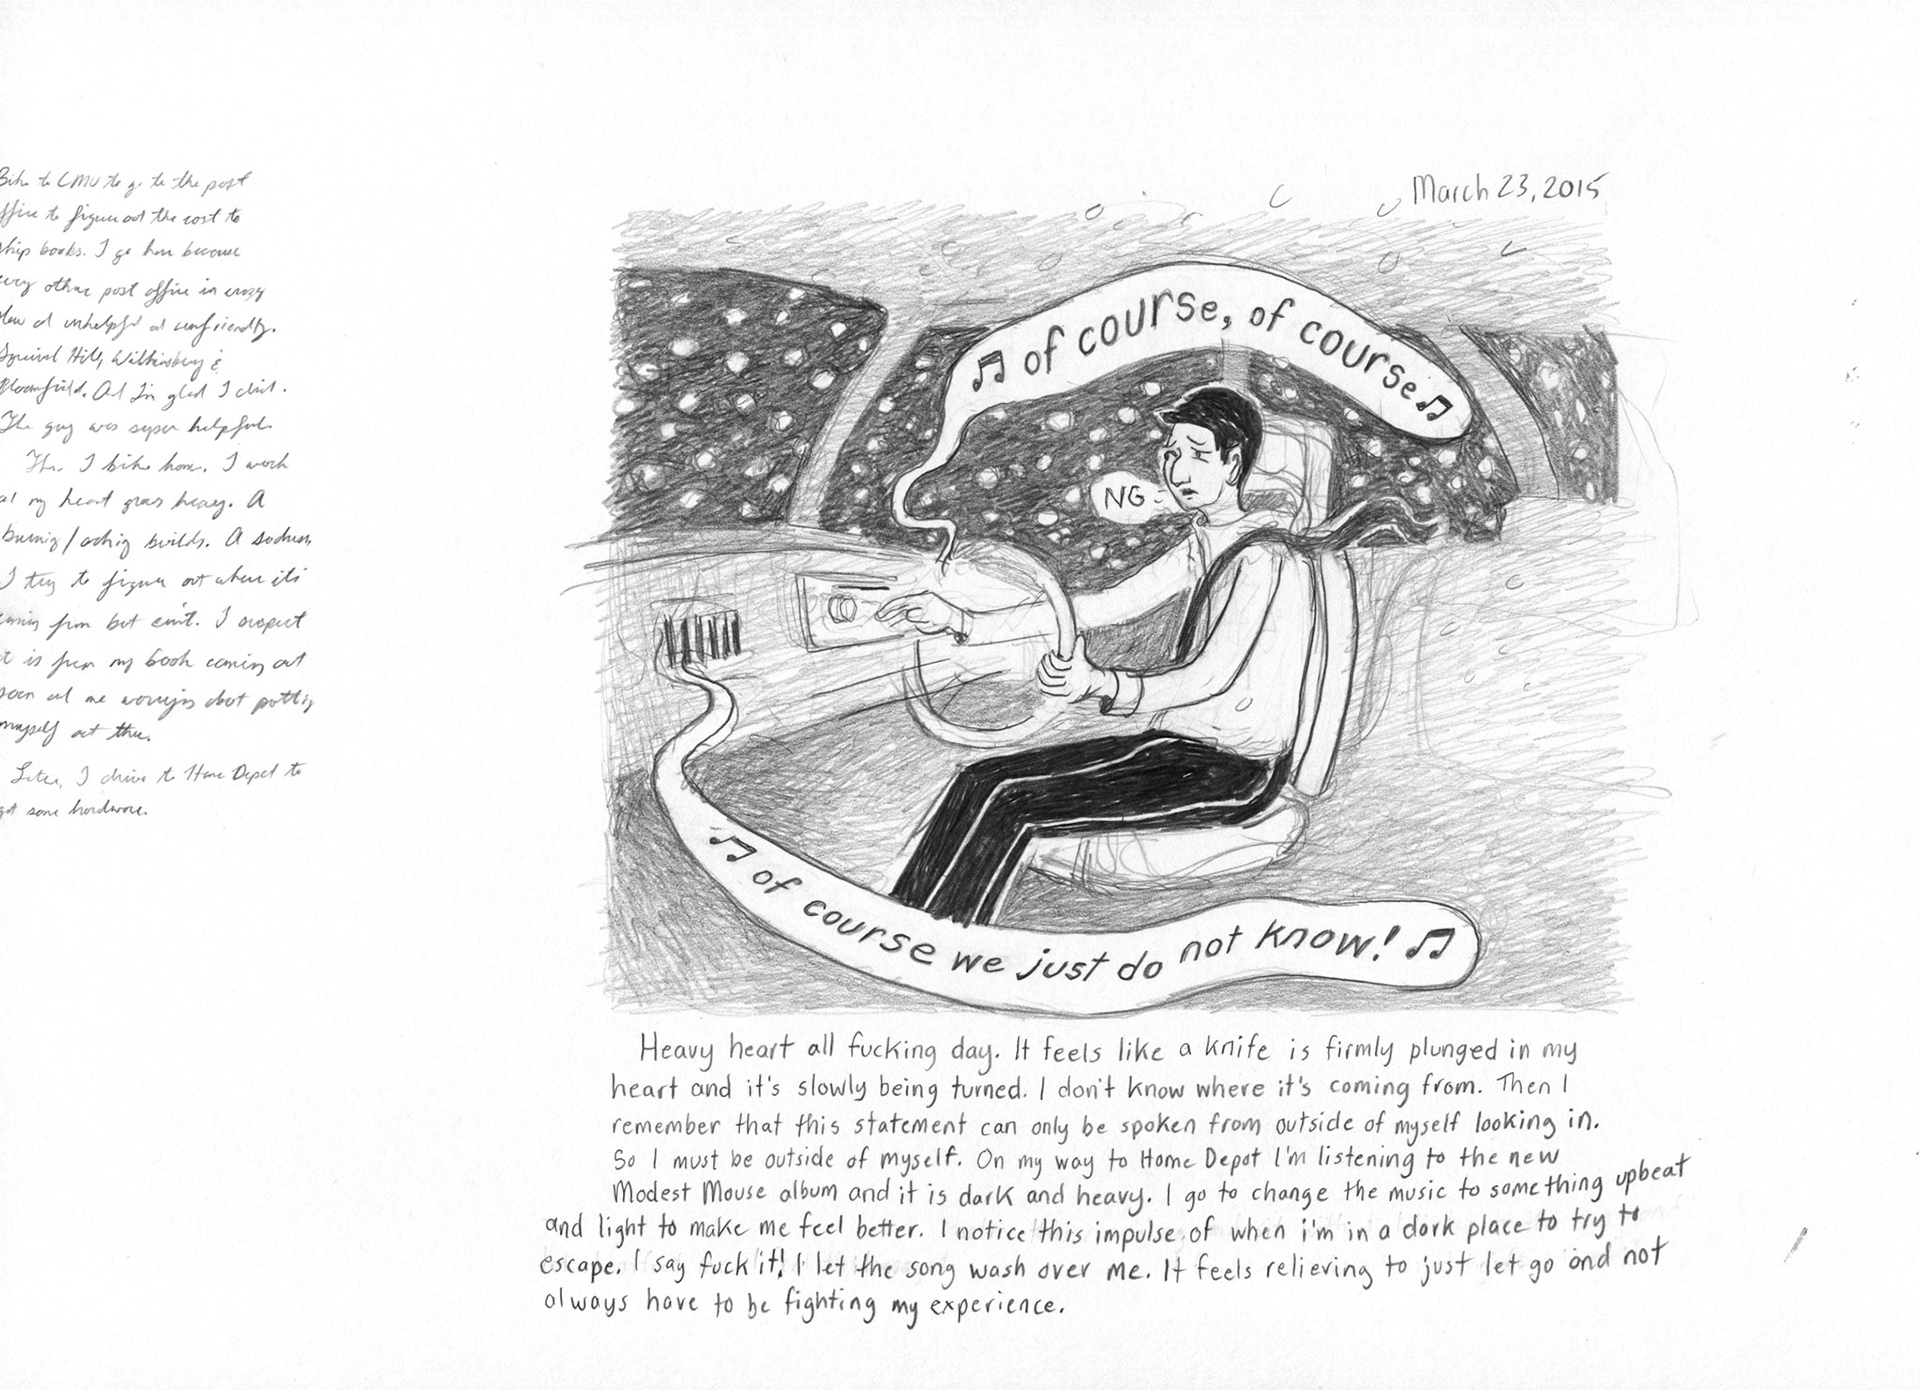 Bike to CMU to go to the post
office to figure out the cost to
ship books. I go here because
every other post office is crazy
slow and unhelpful and unfriendly.
Squirrel Hill, Wilkinsburg &
Bloomfield. And I'm glad I did.
The guy was super helpful.
Then I bike home. I work
and my heart grows heavy. A
burning/aching builds. A sadness,
I try to figure out where it's
coming from but can't. I suspect
it is from my book coming out
soon and me worrying about putting
myself out there.
Later, I drive to Home Depot to
get some hardware.
March 23, 2015
♫ of course, of course ♫
NG-
♫ of course we just do not know! ♫
Heavy heart all fucking day. It feels like a knife is firmly plunged in my
heart and it's slowly being turned. I don't know where it's coming from. Then I
remember that this statement can only be spoken from outside of myself looking in.
So I must be outside of myself. On my way to Home Depot I'm listening to the new
Modest Mouse album and it is dark and heavy. I go to change the music to something upbeat
and light to make me feel better. I notice this impulse of when i'm in a dark place to try to
escape. I say fuck it! I let the song wash over me. It feels relieving to just let go and not
always have to be fighting my experience.